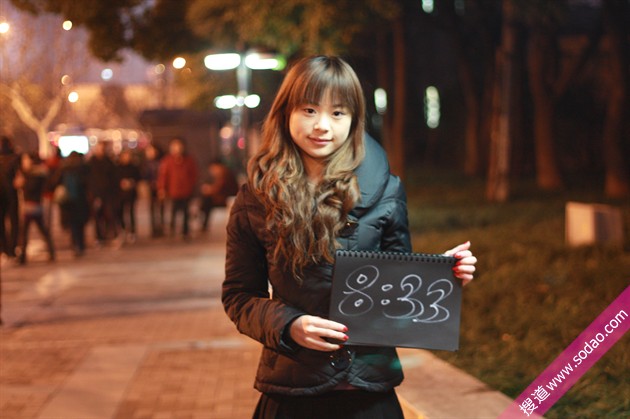 8:33
搜道 www.sodao.com